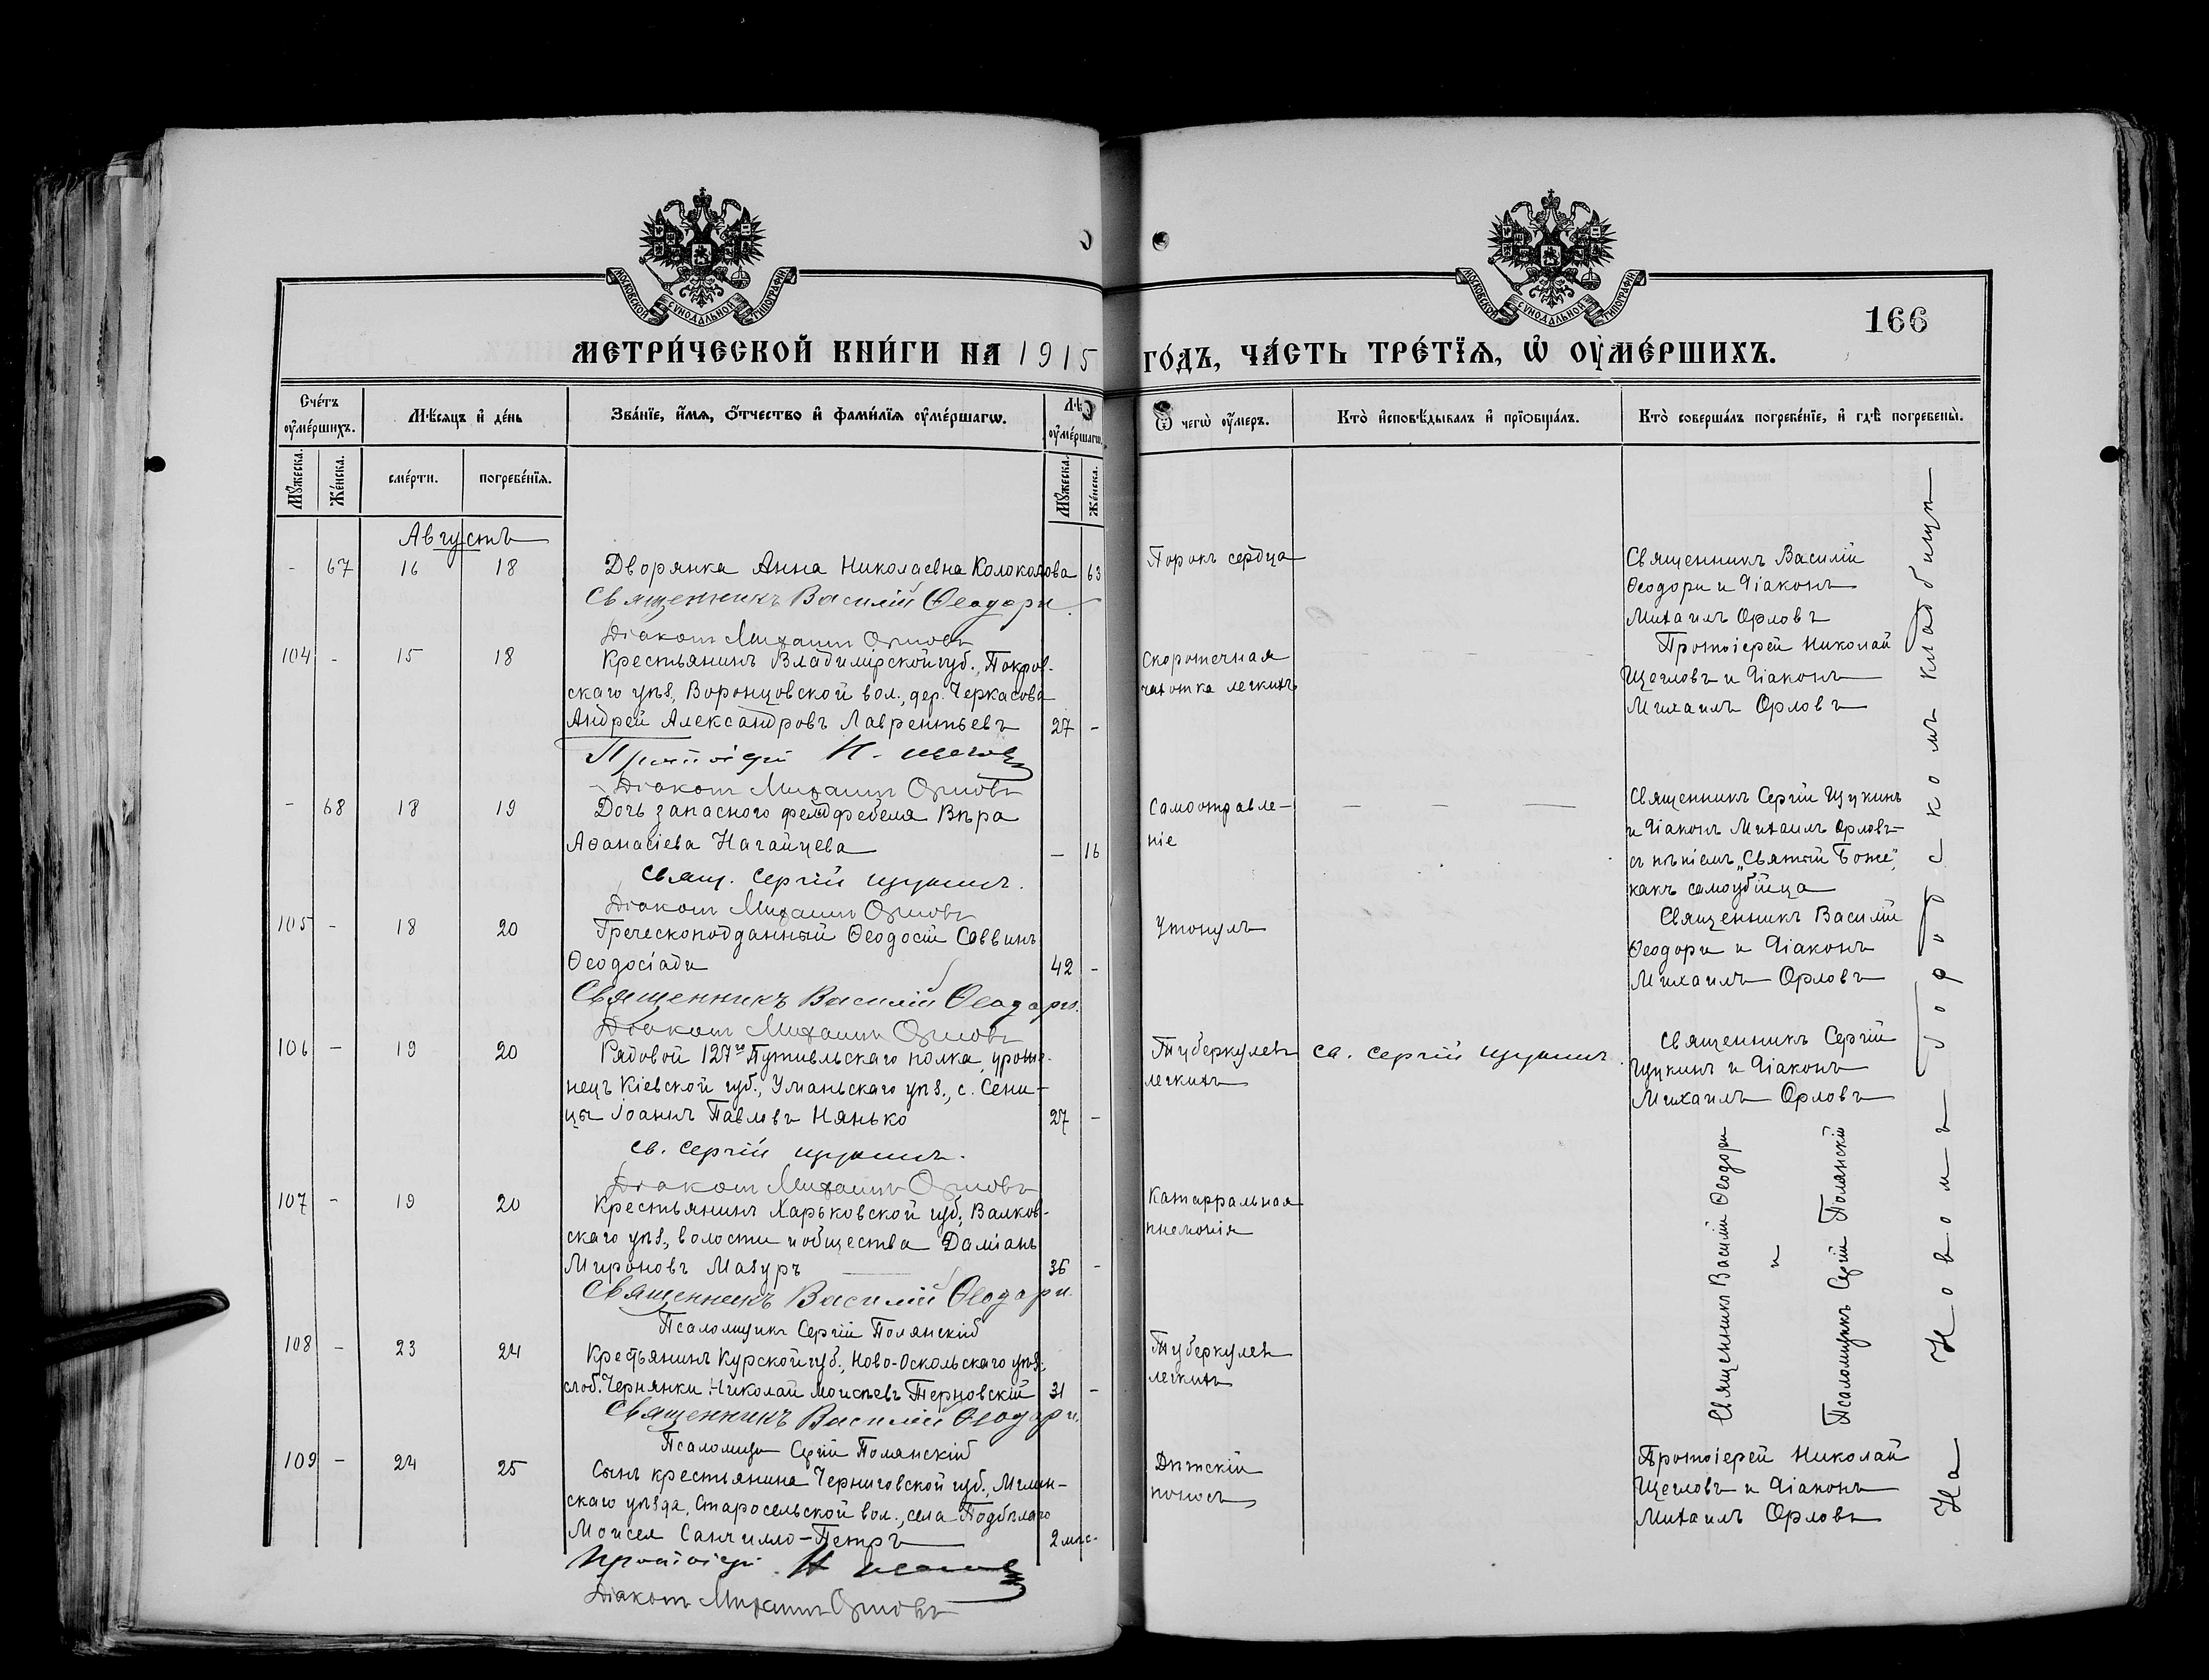 МОСКОВСКОЙ СѴНОДАЛЬНОЙ ТИПОГРАФІИ
МОСКОВСКОЙ СѴНОДАЛЬНОЙ ТИПОГРАФІИ
166
МЕТРИ́ЧЕСКОЙ КНИ́ГИ НА 1915 ГО́ДЪ, ЧА́СТЬ ТРЕ́ТЇѦ, Ѡ҆ ОУ҆МЕ́РШИХЪ.
Сче́тъ оу҆ме́ршихъ.
Мѣ́сяцъ и҆ де́нь
Зва́нїе, и҆́мѧ, ѻ҆́тчество и҆ фами́лїѧ оу҆ме́ршагѡ.
Лѣ оу҆ме́ршагѡ
Ѿ чегѡ̀ оу҆́меръ.
Кто̀ и҆сповѣ́дывалъ и҆ прїѡбща́лъ.
Кто̀ соверша́лъ погребе́нїе, и҆ гдѣ̀ погребены̀.
Мꙋ́жеска.
Же́нска.
сме́рти.
погребе́нїѧ.
Мꙋ́жеска.
Же́нска.
Августъ
- 67 16 18 Дворянка Анна Николаевна Колоколова 63 Порокъ сердца
Священникъ Василій Ѳеодори
Діаконъ Михаилъ Орловъ
Священникъ Василій
Ѳеодори и Діаконъ
Михаилъ Орловъ
104 - 15 18 Крестьянинъ Владимірской губ., Покров-
скаго уѣз., Воронцовской вол., дер. Черкасова
Андрей Александровъ Лаврентьевъ 27 -
Протоіерей Н. Щегловъ
Діаконъ Михаилъ Орловъ
Скоротечная
чахотка легкихъ
Протоіерей Николай
Щегловъ и Діаконъ
Михаилъ Орловъ
- 68 18 19 Дочь запасного фельдфебеля Вѣра
Аѳанасіева Нагайцева — 16
Свящ. Сергій Щукинъ.
Діаконъ Михаилъ Орловъ
Самоотравле-
ніе
Священникъ Сергій Щукинъ
и Діаконъ Михаилъ Орловъ
съ пѣніемъ „Святый Боже",
какъ самоубійца
105 - 18 20 Греческоподданный Ѳеодосій Саввинъ
Ѳеодосіади 42 -
Священникъ Василій Ѳеодори.
Діаконъ Михаилъ Орловъ
Утонулъ
Священникъ Василій
Ѳеодори и Діаконъ
Михаилъ Орловъ
106 - 19 20 Рядовой 127го Путивльскаго полка, уроже-
нецъ Кіевской губ., Уманьскаго уѣз., с. Сени-
цы Іоаннъ Павловъ Нянько 27 -
Св. Сергій Щукинъ.
Діаконъ Михаилъ Орловъ
Туберкулезъ
легкихъ
Св. Сергій Щукинъ.
Священникъ Сергій
Щукинъ и Діаконъ
Михаилъ Орловъ
107 - 19 20 Крестьянинъ Харьковской губ., Валков-
скаго уѣз., волости и общества Даміанъ
Мироновъ Мазуръ 36 -
Священникъ Василій Ѳеодори
Псаломщикъ Сергій Полянскій
Катарральная
пнемонія
108 - 23 24 Крестьянинъ Курской губ., Ново-Оскольскаго уѣз.
слоб. Чернянки Николай Моисѣевъ Терновскій 31 -
Священникъ Василій Ѳеодори.
Псаломщикъ Сергій Полянскій
Туберкулезъ
легкихъ
Священникъ Василій Ѳеодори
и
Псаломщикъ Сергій Полянскій
109 - 24 25 Сынъ крестьянина Черниговской губ., Мглин-
скаго уѣзда, Старосельской вол., села Подбѣлаго
Моисея Санчилло-Петръ 2 мѣс-
Протоіерей Н Щегловъ
Діаконъ Михаилъ Орловъ
Дѣтскій
поносъ
Протоіерей Николай
Щегловъ и Діаконъ
Михаилъ Орловъ
На Новомъ Городскомъ кладбищѣ